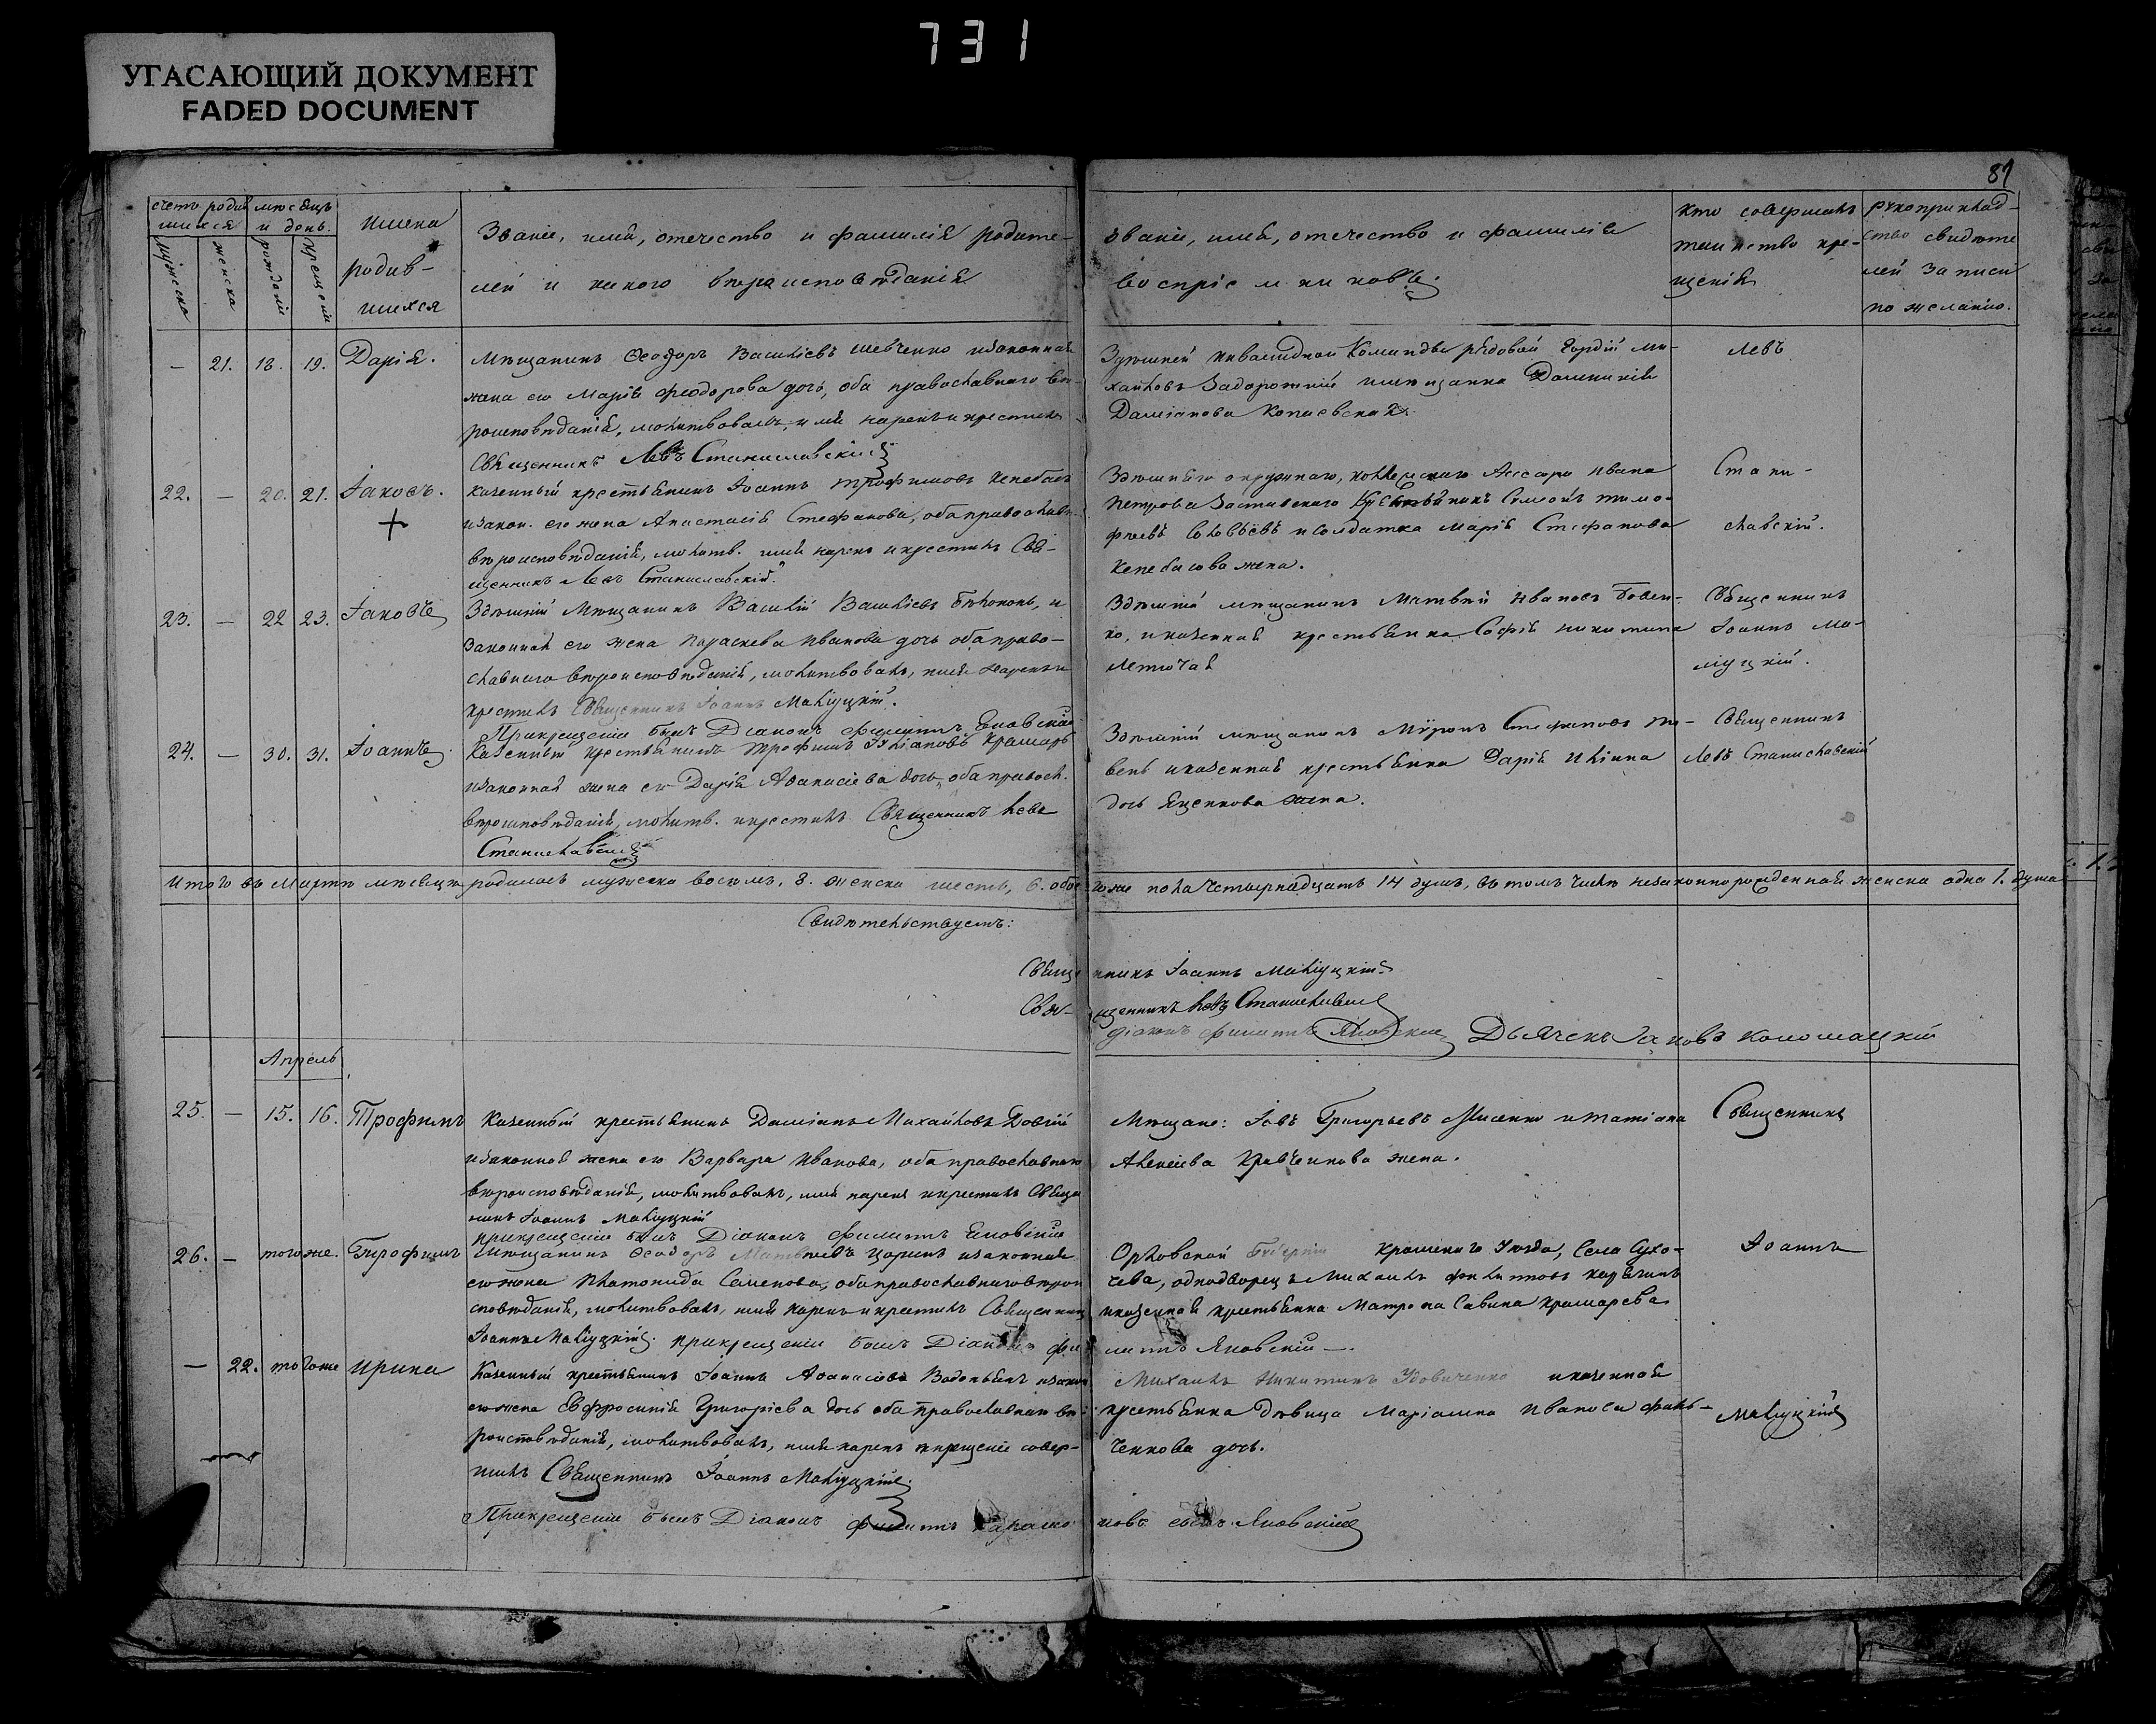 731
УГАСАЮЩИЙ ДОКУМЕНТ
FADED DOCUMENT
87
счетъ родив
шихся
мѣсяцъ
и день.
мужеска
женска
рожденія
крещенія
имена
родив-
шихся
Званіе, имя, отечество и фамилія родите-
лей и какого вѣроисповѣданія
Званіе, имя, отечество и фамилія
воспріемниковъ.
кто совершалъ
таинство кре-
щенія
рукоприклад-
ство свидѣте
лей записи
по желанію.
— 21. 18. 19. Дарія.
Мѣщанинъ Ѳеодоръ Василіевъ Шевченко изаконная
жена его Марія Феодорова дочь, оба православнаго вѣ-
роисповѣданія, молитвовалъ, имя нарекъ и крестилъ
Священникъ Левъ Станиславскій
Здѣшней инвалидной Команды рядовой Гордій Ми-
хайловъ Задорожній имѣщанка Домникія
Даміанова
Левъ
22. — 20. 21. Іаковъ.
Казенный крестьянинъ Іоаннъ Трофимовъ
изакон. его жена Анастасія Стефанова, оба православн.
вѣроисповѣданія, молитв. имя нарекъ и крестилъ Свя-
щенникъ Левъ Станиславскій
Здѣшняго окружнаго, коллежскаго Ассесора Ивана
Петрова Заставскаго Крестьянинъ Симеонъ Тимо-
фѣевъ Соловьевъ исолдатка Марія Стефанова
жена.
Стани-
славскій.
23. — 22 23. Іаковъ
Здѣшній Мѣщанинъ Василій Василіевъ и
законная его жена Параскева Иванова дочь оба право-
славнаго вѣроисповѣданія, молитвовалъ, имя нарекъ и
крестилъ Священникъ Іоаннъ Малиуцкій.
При крещеніи былъ Діаконъ Филиппъ Яновскій
Здѣшній мѣщанинъ Матвѣй Ивановъ
ко, иказенная крестьянка Софія Никитина
Летючая
Священникъ
Іоаннъ Ма-
лiуцкій.
24. — 30. 31. Іоаннъ
Казенный крестьянинъ Трофимъ Иліановъ Крамарь
изаконная жена его Дарія Аѳанасіева дочь, оба правосл.
вѣроисповѣданія, молитв. икрестилъ Священникъ Левъ
Станиславскій
Здѣшній мѣщанинъ Муронъ Стефановъ
иказенная крестьянка Дарія Иліина
дочь Яценкова жена.
Священникъ
Левъ Станиславскій
Итого въ Мартѣ мѣсяцѣ родилось мужеска восемь, 8. женска шесть, 6. обоего же пола четырнадцать 14 душъ, въ томъ числѣ незаконнорожденная женска одна 1. душа
Свидѣтельствуемъ:
Священникъ Іоаннъ Малiуцкій
Священникъ Левъ Станиславскій
Діаконъ Филиппъ Яновскій Дьячекъ Іаковъ Коломацкій
Апрель
25. — 15. 16. Трофимъ
Казенный крестьянинъ Даміанъ Михайловъ Довгій
изаконная жена его Варвара Иванова, оба православнаго
вѣроисповѣданія, молитвовалъ, имя нарекъ икрестилъ Священ
никъ Іоаннъ Малiуцкій
при крещеніи былъ Діаконъ Филиппъ Яновскій
Мѣщане: Іовъ Григорьевъ Лисенко и Татіана
Алексіева Кравченкова жена.
Священникъ
26. — тогоже. Трофимъ
Мѣщанинъ Ѳеодоръ Матвѣевъ Царинъ изаконная
его жена Платонида Семенова, оба православнаго вѣрои
сповѣданія, молитвовалъ, имя нарекъ и крестилъ Священникъ
Іоаннъ Малiуцкій. При крещеніи былъ Діаконъ Филиппъ Яновскій —.
Орловской Губерніи Кромскаго Уѣзда, Села Сухо-
чева, однодворецъ Михаилъ Филиповъ
иказенная крестьянка Матрона Савина Крамарева
Іоаннъ
— 22. тогоже Ирина
Казенный крестьянинъ Іоаннъ Аѳанасіевъ Водопьянъ изакон
его жена Евфросинія Григорієва дочь оба Православнаго вѣ-
роисповѣданія, молитвовалъ, имя нарекъ икрещеніе совер-
шилъ Священникъ Іоаннъ Малiуцкій.
При крещеніи былъ Діаконъ Филиппъ
сынъ Яновскій
Михаилъ Никитинъ Удовиченко иказенная
крестьянка дѣвица Маріамна Иванова Филь-
ченкова дочь.
Малiуцкій